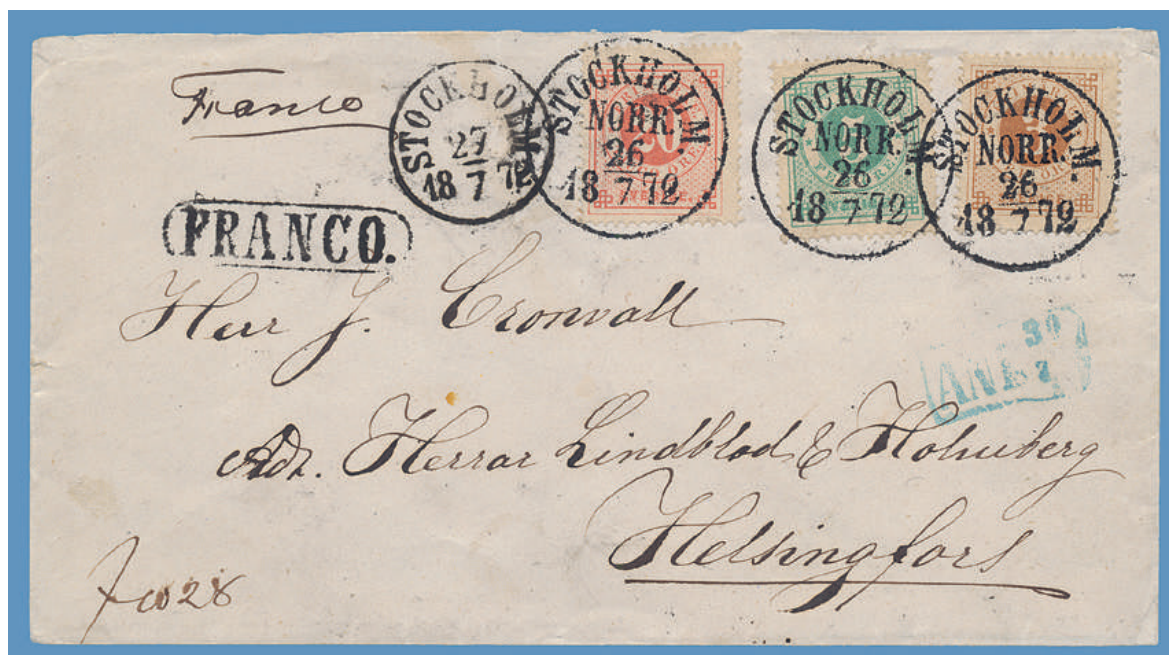 Franco
STOCKHOLM
27
18 7 72
STOCKHOLM
NORR.
26
18 7 72
20
STOCKHOLM.
NORR.
26
18 7 72
5
STOCKHOLM.
NORR.
26
18 7 72
FRANCO.
Herr J. Cronvall
ANK
30
7
Adr. Herrar Lindblad & Holmberg
Helsingfors
28